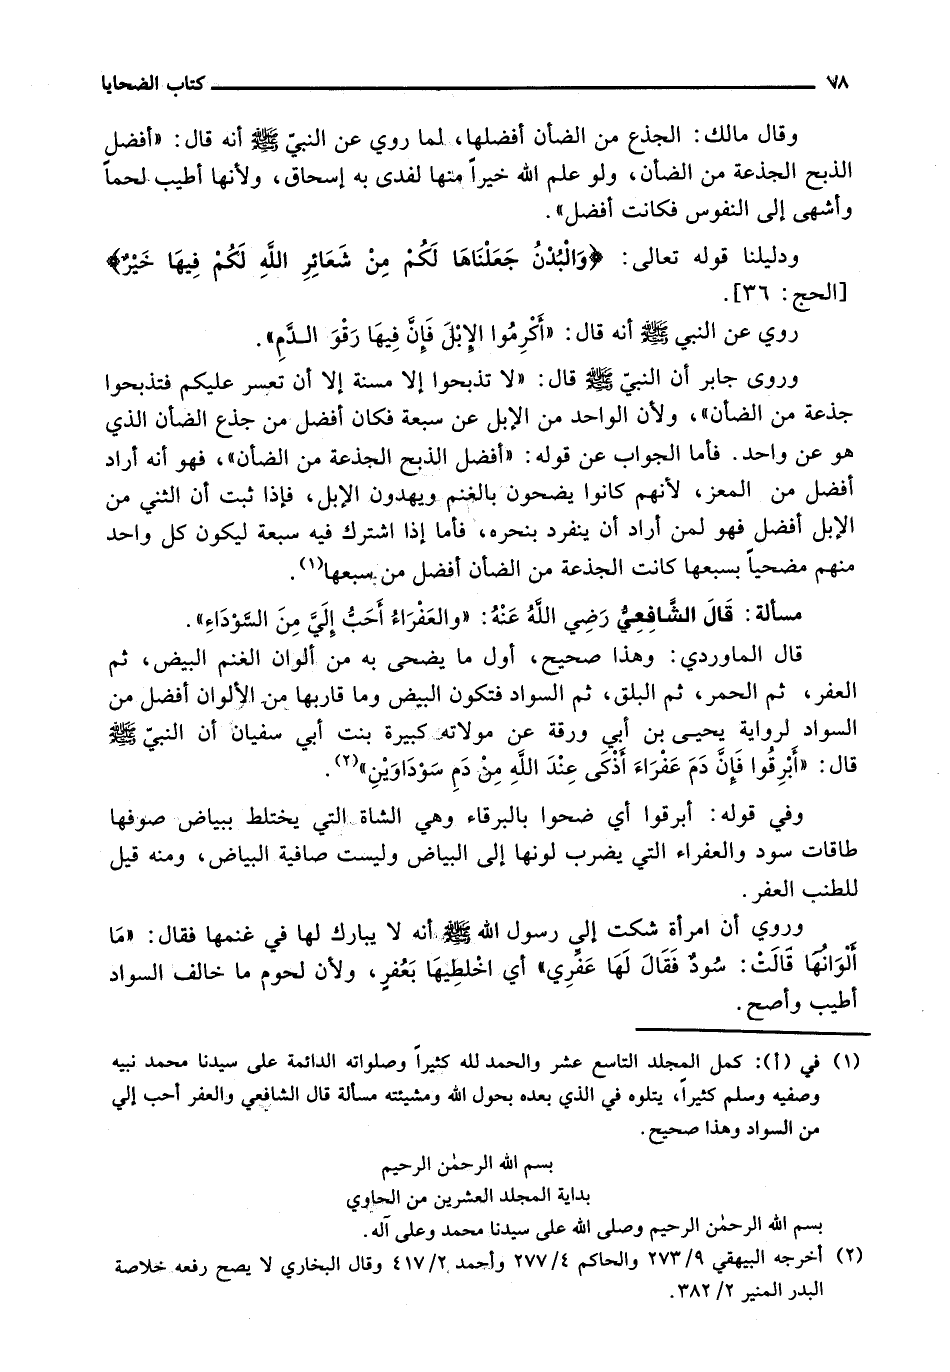 ٧٨ كتاب الضحايا
وقال مالك: الجذع من الضأن أفضلها، لما روي عن النبيّ ﷺ أنه قال: «أفضل
الذبح الجذعة من الضأن، ولو علم الله خيراً منها لفدى به إسحاق، ولأنها أطيب لحماً
وأشهى إلى النفوس فكانت أفضل».
ودليلنا قوله تعالى: ﴿وَالْبُدْنُ جَعَلْنَاهَا لَكُمْ مِنْ شَعَائِرِ اللَّهِ لَكُمْ فِيهَا خَيْرٌ﴾
[الحج: ٣٦].
روي عن النبي ﷺ أنه قال: «أَكْرِمُوا الإِبْلَ فَإِنَّ فِيهَا رَقْوَ الـدَّمِ».
وروى جابر أن النبيّ ﷺ قال: «لا تذبحوا إلا مسنة إلا أن تعسر عليكم فتذبحوا
جذعة من الضأن»، ولأن الواحد من الإبل عن سبعة فكان أفضل من جذع الضأن الذي
هو عن واحد. فأما الجواب عن قوله: «أفضل الذبح الجذعة من الضأن»، فهو أنه أراد
أفضل من المعز، لأنهم كانوا يضحون بالغنم ويهدون الإبل، فإذا ثبت أن الثني من
الإبل أفضل فهو لمن أراد أن ينفرد بنحره، فأما إذا اشترك فيه سبعة ليكون كل واحد
منهم مضحياً بسبعها كانت الجذعة من الضأن أفضل من سبعها(١).
مسألة: قَالَ الشَّافِعِيُّ رَضِي اللَّهُ عَنْهُ: «والعَفْرَاءُ أَحَبُّ إِلَيَّ مِنَ السَّوْدَاءِ».
قال الماوردي: وهذا صحيح، أول ما يضحى به من ألوان الغنم البيض، ثم
العفر، ثم الحمر، ثم البلق، ثم السواد فتكون البيض وما قاربها من الألوان أفضل من
السواد لرواية يحيى بن أبي ورقة عن مولاته كبيرة بنت أبي سفيان أن النبيّ ﷺ
قال: «أَبْرِقُوا فَإِنَّ دَمَ عَفْرَاءَ أَذْكَى عِنْدَ اللَّهِ مِنْ دَمِ سَوْدَاوَيْنِ»(٢).
وفي قوله: أبرقوا أي ضحوا بالبرقاء وهي الشاة التي يختلط ببياض صوفها
طاقات سود والعفراء التي يضرب لونها إلى البياض وليست صافية البياض، ومنه قيل
للطنب العفر.
وروي أن امرأة شكت إلى رسول الله ﷺ أنه لا يبارك لها في غنمها فقال: «مَا
أَلْوَانُهَا قَالَتْ: سُودٌ فَقَالَ لَهَا عَفِّرِي» أي اخْلطِيهَا بَعُفرٍ، ولأن لحوم ما خالف السواد
أطيب وأصح.
(١) في (أ): كمل المجلد التاسع عشر والحمد لله كثيراً وصلواته الدائمة على سيدنا محمد نبيه
وصفيه وسلم كثيراً، يتلوه في الذي بعده بحول الله ومشيئته مسألة قال الشافعي والعفر أحب إلي
من السواد وهذا صحيح.
بسم الله الرحمٰن الرحيم
بداية المجلد العشرين من الحاوي
بسم الله الرحمٰن الرحيم وصلى الله على سيدنا محمد وعلى آله.
(٢) أخرجه البيهقي ٢٧٣/٩ والحاكم ٢٧٧/٤ وأحمد ٤١٧/٢ وقال البخاري لا يصح رفعه خلاصة
البدر المنير ٢/ ٣٨٢.